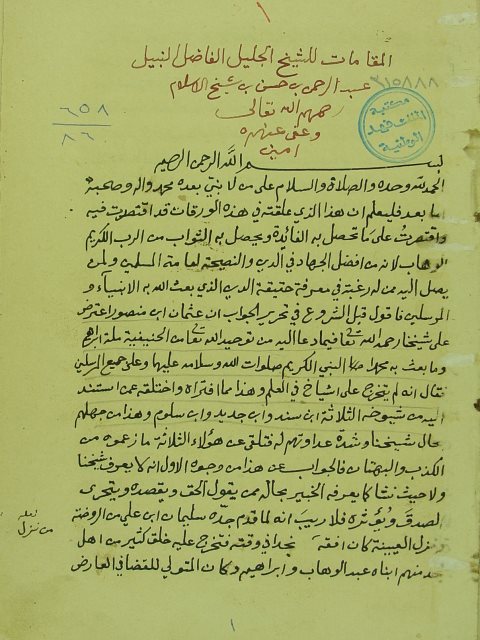 ١
المقامات للشيخ الجليل الفاضل النبيل
عبد الرحمن بن حسن بن شيخ الاسلام
رحمهم الله تعالى
وعفى عنهم
امين
٦٥٨
٨٦
مكتبة
الملك فهد
الوطنية
بسم الله الرحمن الرحيم
الحمد لله وحده والصلاة والسلام على من لا نبي بعده محمد واله وصحبه
اما بعد فليعلم ان هذا الذي علقته في هذه الورقات قد اقتصرت فيه
واقتصرت على ما تحصل به الفائدة ويحصل به الثواب من الرب الكريم
الوهاب لانه من افضل الجهاد في الدين والنصيحة لعامة المسلمين ولمن
يصل اليه ممن له رغبة في معرفة حقيقة الدين الذي بعث الله به الانبياء و
المرسلين فاقول قبل الشروع في تحرير الجواب ان عثمان ابن منصور اعترض
على شيخنا رحمه الله تعالى فيما دعا اليه من توحيد الله تعالى من الحنيفية ملة ابراهيم
وما بعث به محمدا النبي الكريم صلوات الله وسلامه عليهما وعلى جميع المرسلين
فقال انه لم يتخرج على اشياخ في العلم وهذا مما افتراه واختلقه عمن استند
اليه من شيوخه الثلاثة ابن سند وابن جديد وابن سلوم وهذا من جهلهم
بحال شيخنا وشدة عداوتهم له فتلقى عن هؤلاء الثلاثة ما زعموه من
الكذب والبهتان فالجواب عن هذا من وجوه الاول انه لا يعرف شيخنا
ولا حيث نشا كما يعرفه الخبير بحاله ممن يقول الحق ويقصده ويتحرى
الصدق ويؤثره فلا ريب انه لما قدم جده سليمان ابن علي من الروضة
ونزل العيينة كان افقه نجدا في وقته فتخرج عليه خلق كثير من اهل
نجد منهم ابناه عبد الوهاب وابراهيم وكان المتولي للقضا في العارض
١